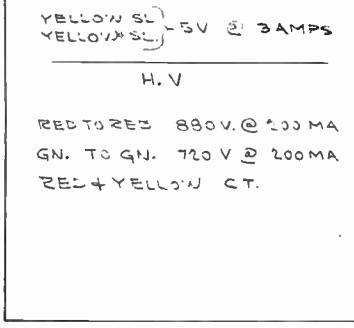 YELLOW SL
YELLOW SL. } 5V @ 3 AMPS
H.V
RED TO RED 880 V. @ 200 MA
GN. TO GN. 720 V @ 200 MA
RED & YELLOW CT.